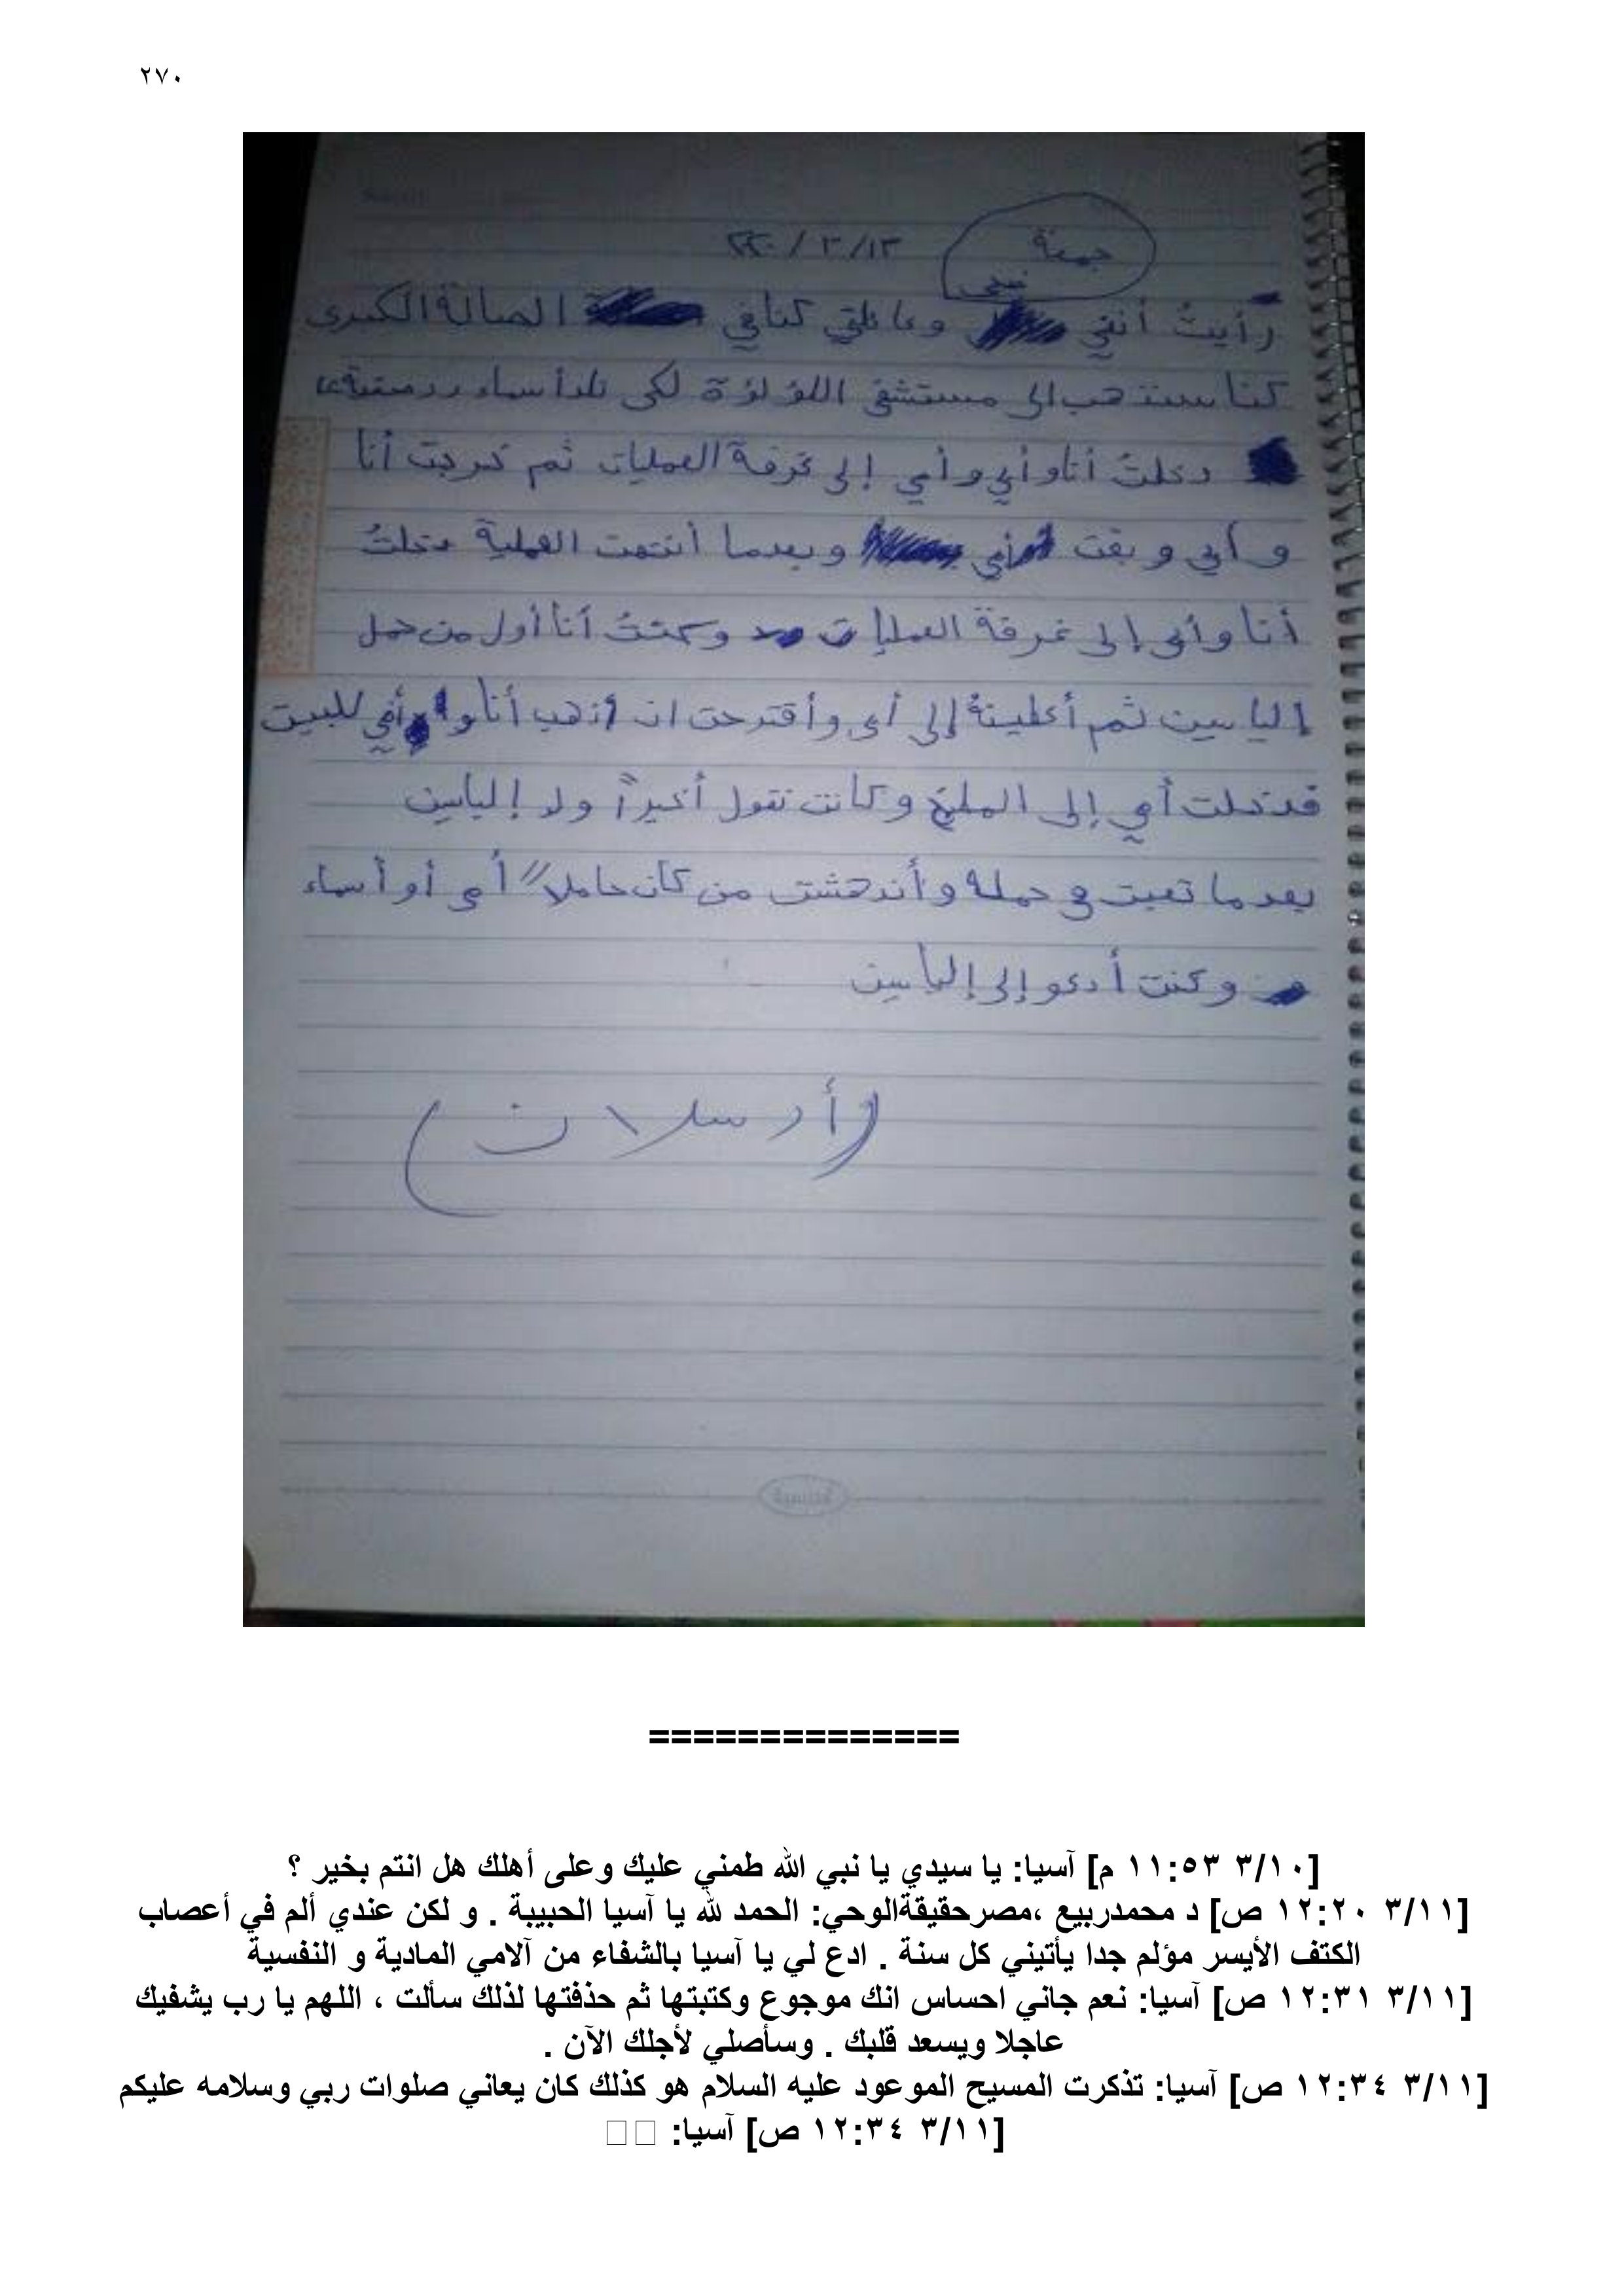 ٢٧٠
جمعة
١٣/ ٣ / ٢٠٢٠
رأيتُ أنني وعائلتي كنا في الصالة الكبرى
كنا سنذهب الى مستشفى اللؤلؤة لكى تلد أسماء
دخلتُ أنا وأبي وأمي إلى غرفة العمليات ثم خرجت أنا
و أبي و بقت أمي وبعدما أنتهت العملية دخلتُ
أنا وأبى إلى غرفة العمليات وكنتُ أنا أول من حمل
إلياسين ثم أعطيتهُ إلى أبى وأقترحت ان أذهب أنا و أخي للبيت
فدخلت أمي إلى المطبخ وكانت تقول أخيراً ولد إلياسين
بعدما تعبت في حمله وأندهشت من كان حاملاً أمى أو أسماء
وكنت أدعو إلى إلياسين
(أرسلان)
==============
[٣/١٠ ١١:٥٣ م] آسيا: يا سيدي يا نبي الله طمني عليك وعلى أهلك هل انتم بخير ؟
[٣/١١ ١٢:٢٠ ص] د محمدربيع ،مصرحقيقةالوحي: الحمد لله يا آسيا الحبيبة . و لكن عندي ألم في أعصاب
الكتف الأيسر مؤلم جدا يأتيني كل سنة . ادع لي يا آسيا بالشفاء من آلامي المادية و النفسية
[٣/١١ ١٢:٣١ ص] آسيا: نعم جاني احساس انك موجوع وكتبتها ثم حذفتها لذلك سألت ، اللهم يا رب يشفيك
عاجلا ويسعد قلبك . وسأصلي لأجلك الآن .
[٣/١١ ١٢:٣٤ ص] آسيا: تذكرت المسيح الموعود عليه السلام هو كذلك كان يعاني صلوات ربي وسلامه عليكم
[٣/١١ ١٢:٣٤ ص] آسيا: